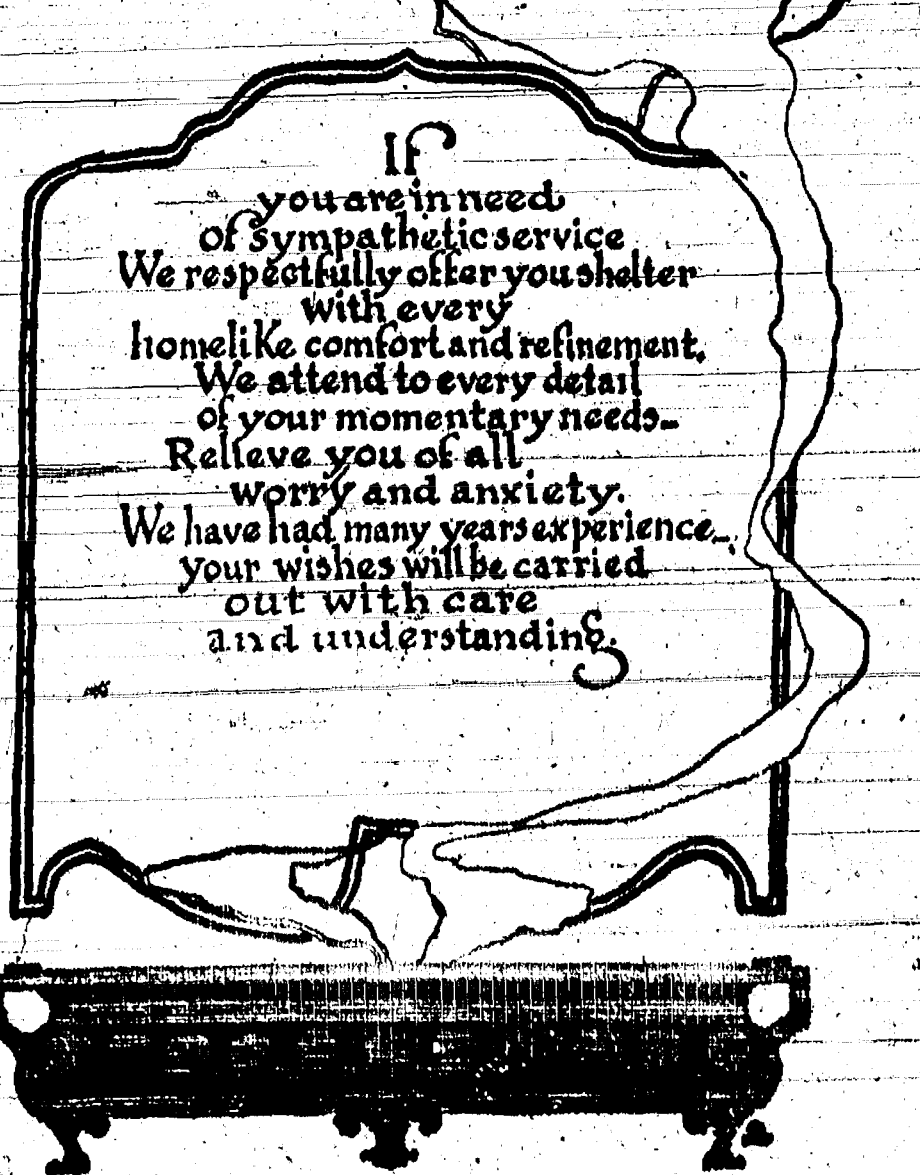 If
you are in need
of sympathetic service
We respectfully offer you shelter
with every
homelike comfort and refinement.
We attend to every detail
of your momentary needs...
Relieve you of all
worry and anxiety.
We have had many years experience...
your wishes will be carried
out with care
and understanding.